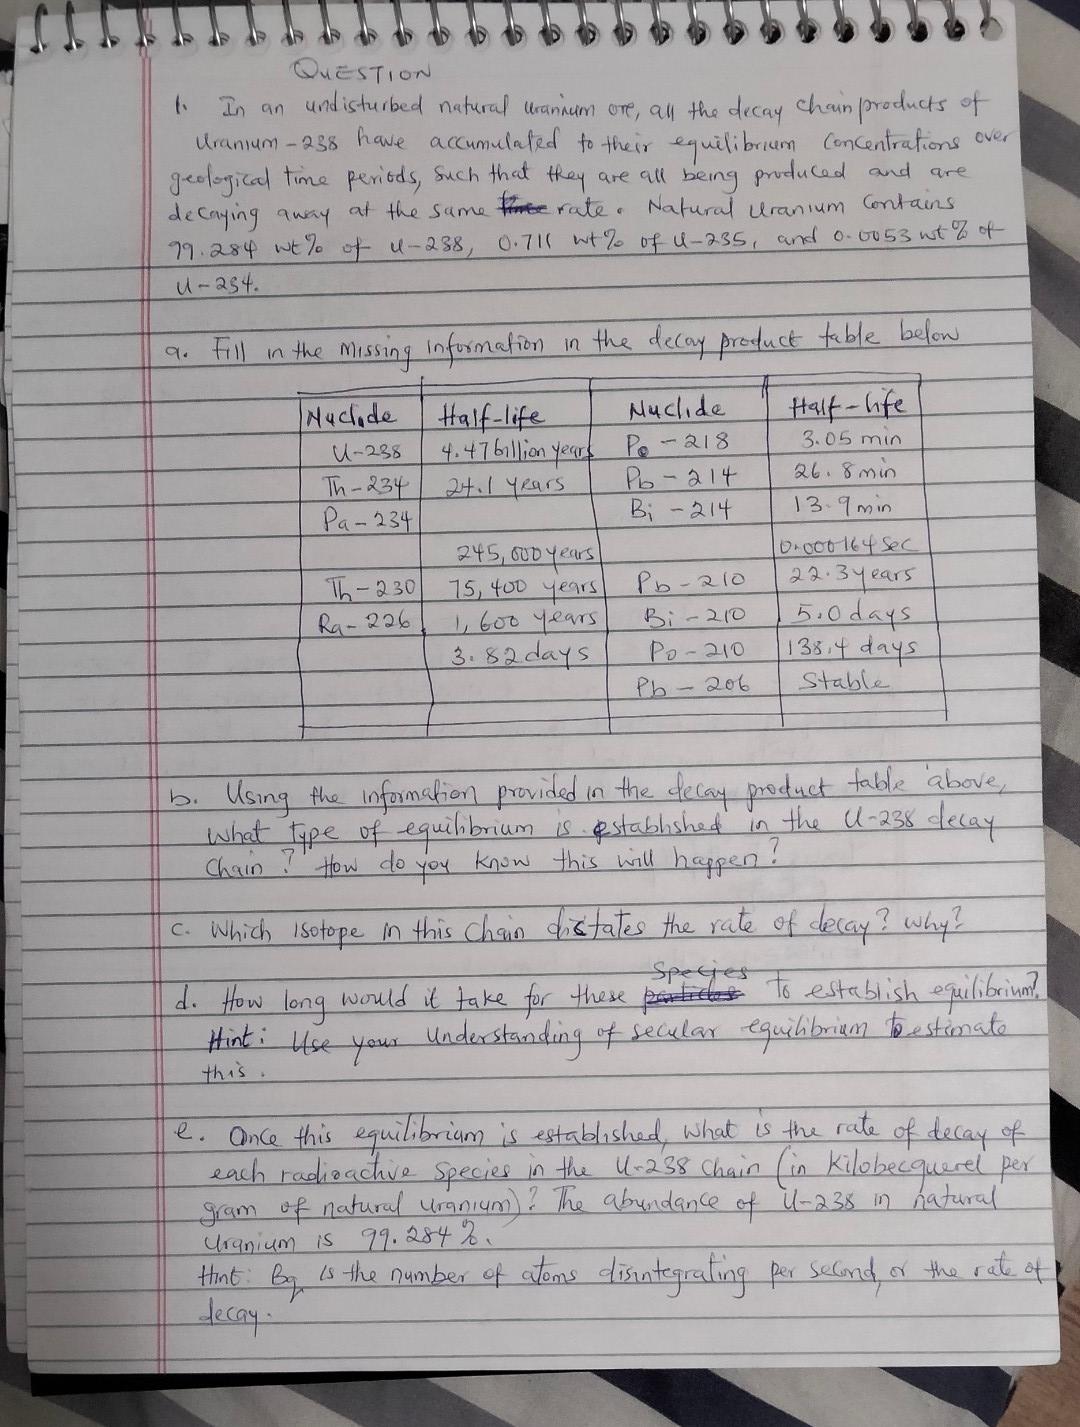 QUESTION
1. In an undisturbed natural uranium ore, all the decay chain products of
Uranium-238 have accumulated to their equilibrium Concentrations over
geological time periods, such that they are all being produced and are
decaying away at the same rate. Natural Uranium Contains
99.284 wt% of U-238, 0.711 wt% of U-235, and 0.0053 wt% of
U-234.
a. Fill in the missing information in the decay product table below
Nuclide Half-life Nuclide Half-life
U-238 4.47 billion years Po-218 3.05 min
Th-234 24.1 years Pb-214 26.8 min
Pa-234 Bi-214 13.9 min
245,000 years 0.000164 Sec
Th-230 75,400 years Pb-210 22.3 years
Ra-226 1,600 years Bi-210 5.0 days
3.82 days Po-210 138.4 days
Pb-206 Stable
b. Using the information provided in the decay product table above,
what type of equilibrium is established in the U-238 decay
Chain? How do you know this will happen?
c. Which isotope in this chain dictates the rate of decay? why?
d. How long would it take for these Species to establish equilibrium?
Hint: Use your understanding of secular equilibrium to estimate
this.
e. Once this equilibrium is established, what is the rate of decay of
each radioactive species in the U-238 chain (in Kilobecquerel per
gram of natural uranium)? The abundance of U-238 in natural
Uranium is 99.284%.
Hint: Bq is the number of atoms disintegrating per second, or the rate of
decay.